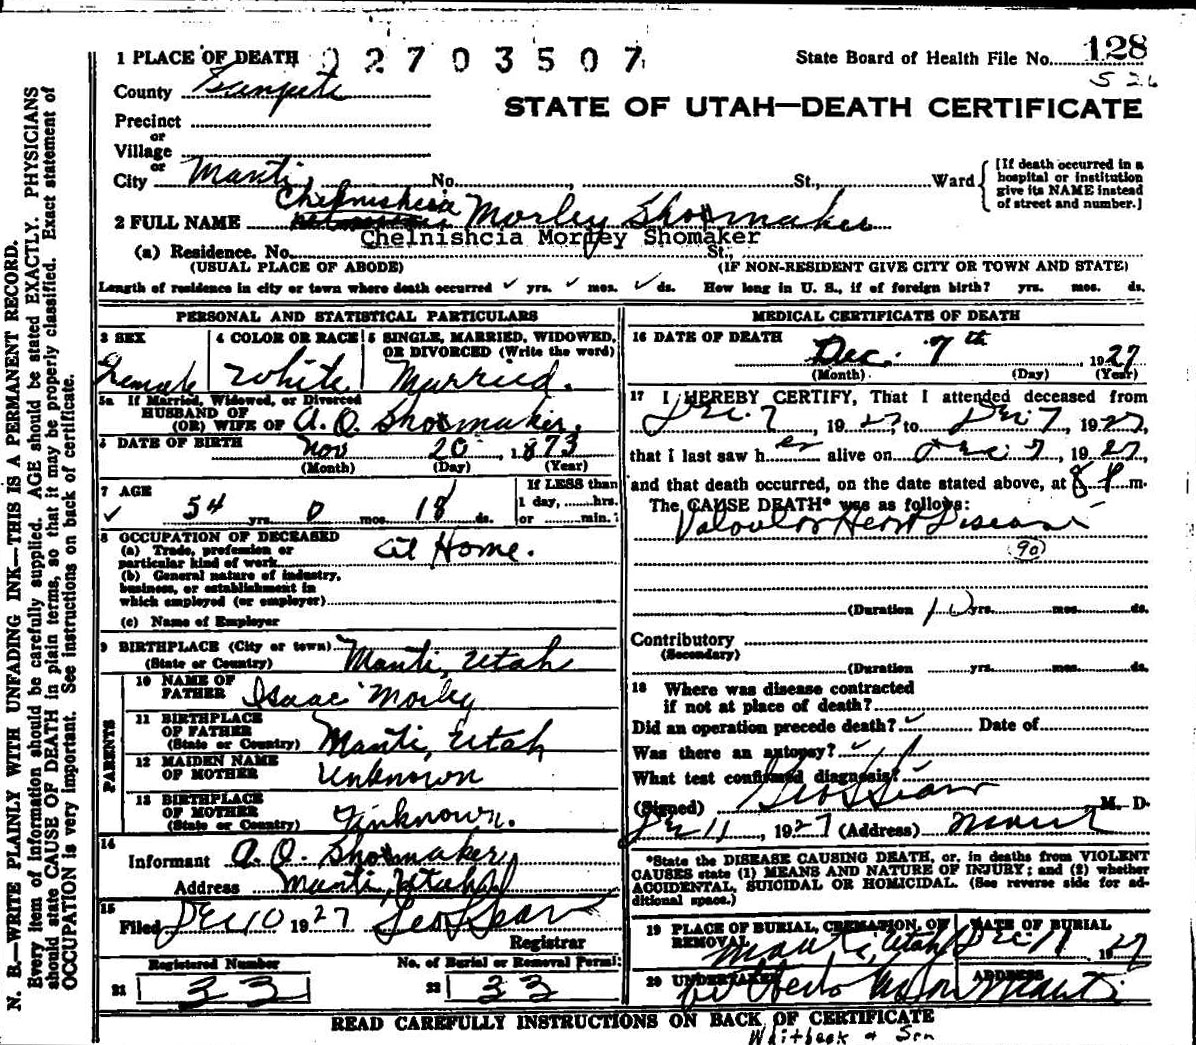 N. B.—WRITE PLAINLY WITH UNFADING INK—THIS IS A PERMANENT RECORD.
Every item of information should be carefully supplied. AGE should be stated EXACTLY. PHYSICIANS
should state CAUSE OF DEATH in plain terms, so that it may be properly classified. Exact statement of
OCCUPATION is very important. See instructions on back of certificate.
1 PLACE OF DEATH 02703507
State Board of Health File No. 128
526
County Sanpete
STATE OF UTAH—DEATH CERTIFICATE
Precinct
or
Village
or
City Manti No. , St., Ward
[If death occurred in a
hospital or institution
give its NAME instead
of street and number.]
2 FULL NAME Chelnishcia Morley Shoemaker
Chelnishcia Morley Shomaker
(a) Residence. No. St.,
(USUAL PLACE OF ABODE) (IF NON-RESIDENT GIVE CITY OR TOWN AND STATE)
Length of residence in city or town where death occurred ✓ yrs. ✓ mos. ✓ ds. How long in U. S., if of foreign birth? yrs. mos. ds.
PERSONAL AND STATISTICAL PARTICULARS
3 SEX Female
4 COLOR OR RACE White
5 SINGLE, MARRIED, WIDOWED,
OR DIVORCED (Write the word)
Married.
5a If Married, Widowed, or Divorced
HUSBAND OF
(OR) WIFE OF A. O. Shoemaker.
6 DATE OF BIRTH Nov 20, 1873
(Month) (Day) (Year)
7 AGE
✓ 54 yrs. 0 mos. 18 ds.
If LESS than
1 day, hrs.
or min.
8 OCCUPATION OF DECEASED
(a) Trade, profession or
particular kind of work At Home.
(b) General nature of industry,
business, or establishment in
which employed (or employer)
(c) Name of Employer
9 BIRTHPLACE (City or town)
(State or Country) Manti, Utah
PARENTS
10 NAME OF
FATHER Isaac Morley
11 BIRTHPLACE
OF FATHER
(State or Country) Manti, Utah
12 MAIDEN NAME
OF MOTHER Unknown
13 BIRTHPLACE
OF MOTHER
(State or Country) Unknown.
14
Informant A. O. Shoemaker
Address Manti, Utah
15
Filed Dec 10 1927 Geo L Sears
Registrar
Registered Number
21 33
No. of Burial or Removal Permit
22 33
MEDICAL CERTIFICATE OF DEATH
16 DATE OF DEATH
Dec. 7th 1927
(Month) (Day) (Year)
17 I HEREBY CERTIFY, That I attended deceased from
Dec. 7, 1927, to Dec 7, 1927,
that I last saw her alive on Dec 7, 1927,
and that death occurred, on the date stated above, at 8 P m.
The CAUSE DEATH* was as follows:
Valvular Heart Disease
(90)
(Duration 10 yrs. mos. ds.
Contributory
(Secondary)
(Duration yrs. mos. ds.
18 Where was disease contracted
if not at place of death?
Did an operation precede death? ✓ Date of
Was there an autopsy? ✓
What test confirmed diagnosis?
(Signed) Geo L Sears M. D.
Dec 11, 1927 (Address) Manti
*State the DISEASE CAUSING DEATH, or, in deaths from VIOLENT
CAUSES state (1) MEANS AND NATURE OF INJURY; and (2) whether
ACCIDENTAL, SUICIDAL OR HOMICIDAL. (See reverse side for ad-
ditional space.)
19 PLACE OF BURIAL, CREMATION, OR
REMOVAL Manti, Utah
DATE OF BURIAL
Dec 11 1927
20 UNDERTAKER
ADDRESS
Manti
READ CAREFULLY INSTRUCTIONS ON BACK OF CERTIFICATE
Whitbeck & Son